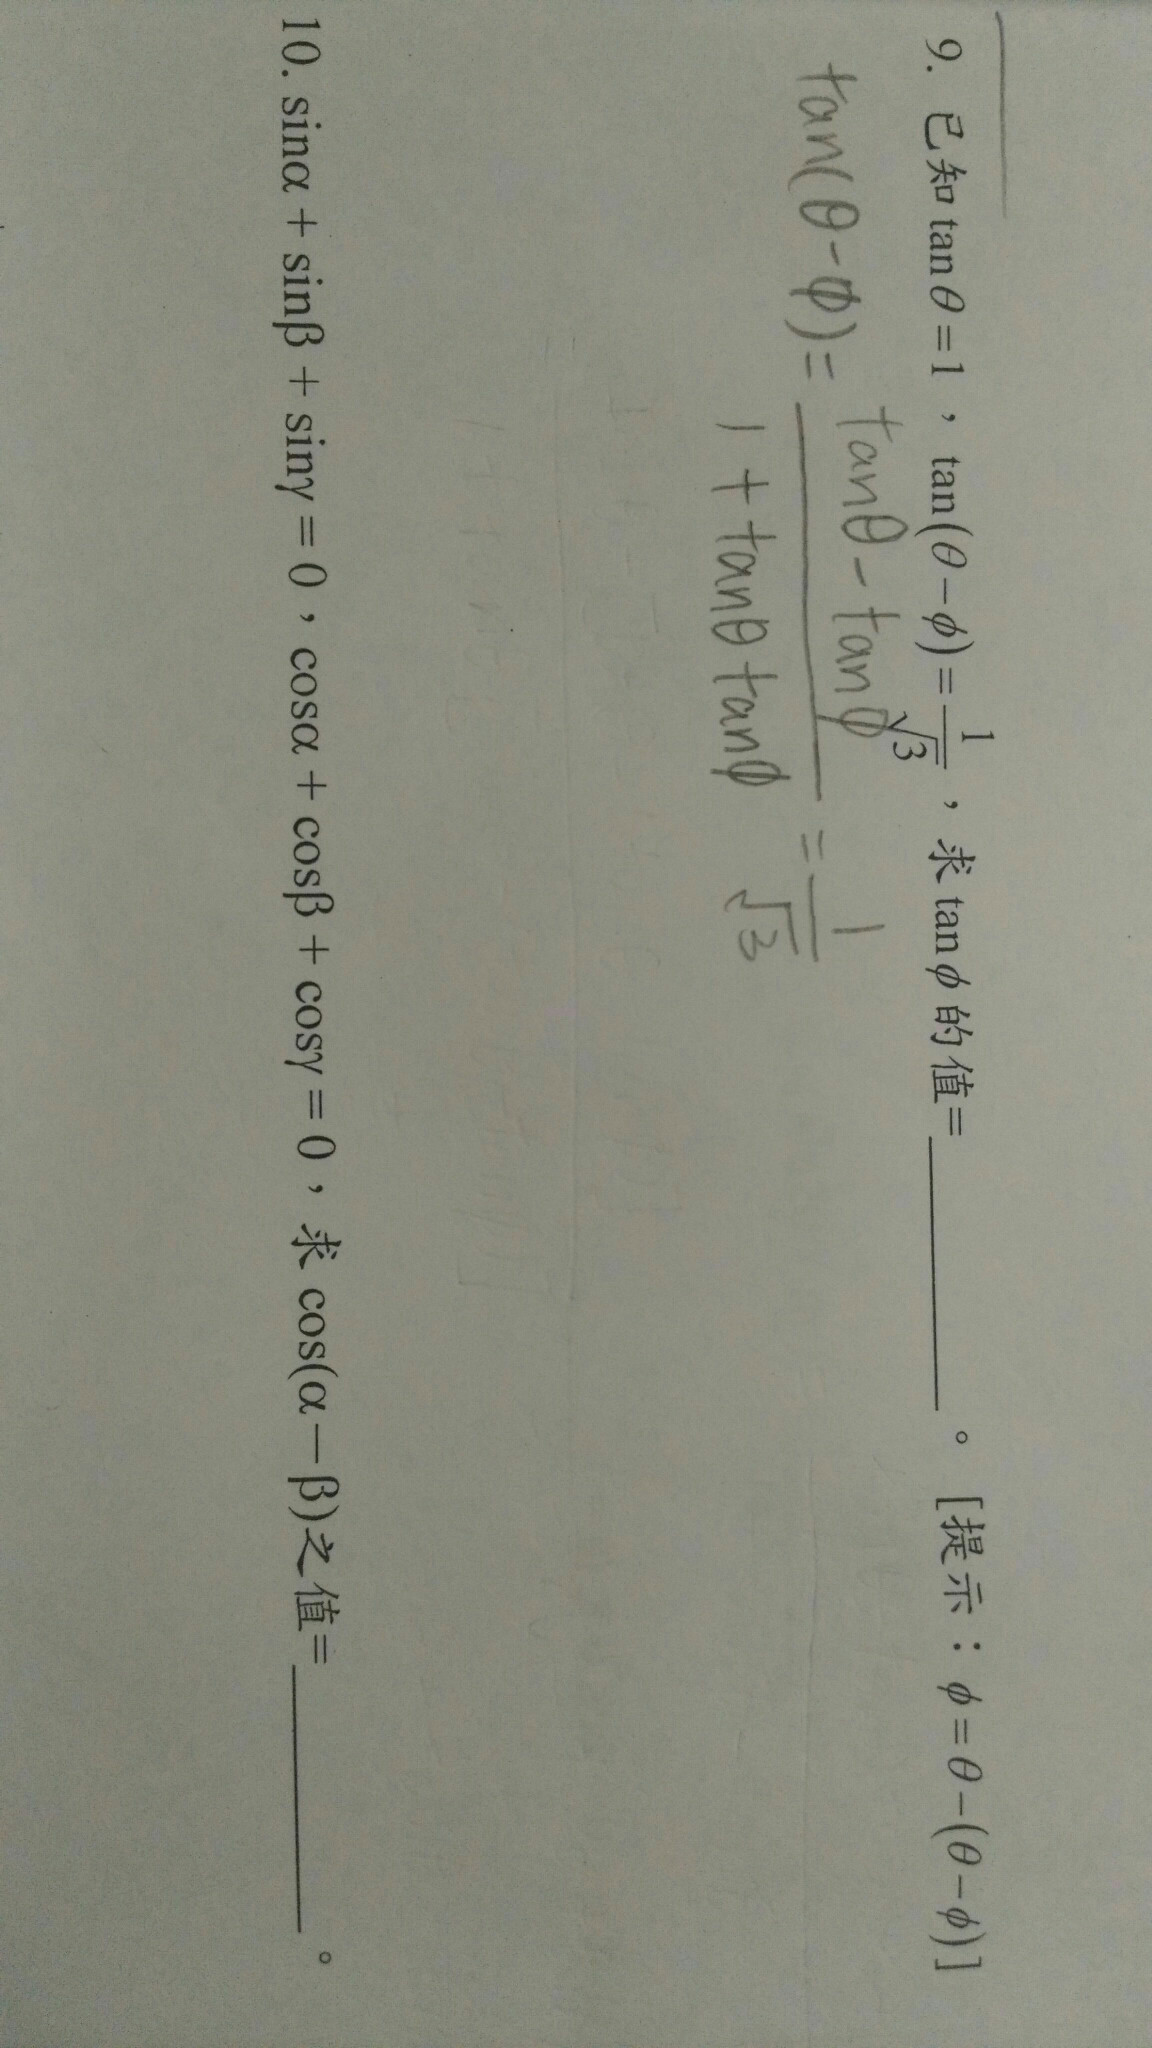 9. 已知 tan θ = 1，tan(θ − ϕ) = 1/√3，求 tan ϕ 的值=________。 [提示：ϕ = θ − (θ − ϕ)]
tan(θ-ϕ)= (tanθ - tanϕ)/(1 + tanθ tanϕ) = 1/√3
10. sinα + sinβ + sinγ = 0，cosα + cosβ + cosγ = 0，求 cos(α — β)之值=________。